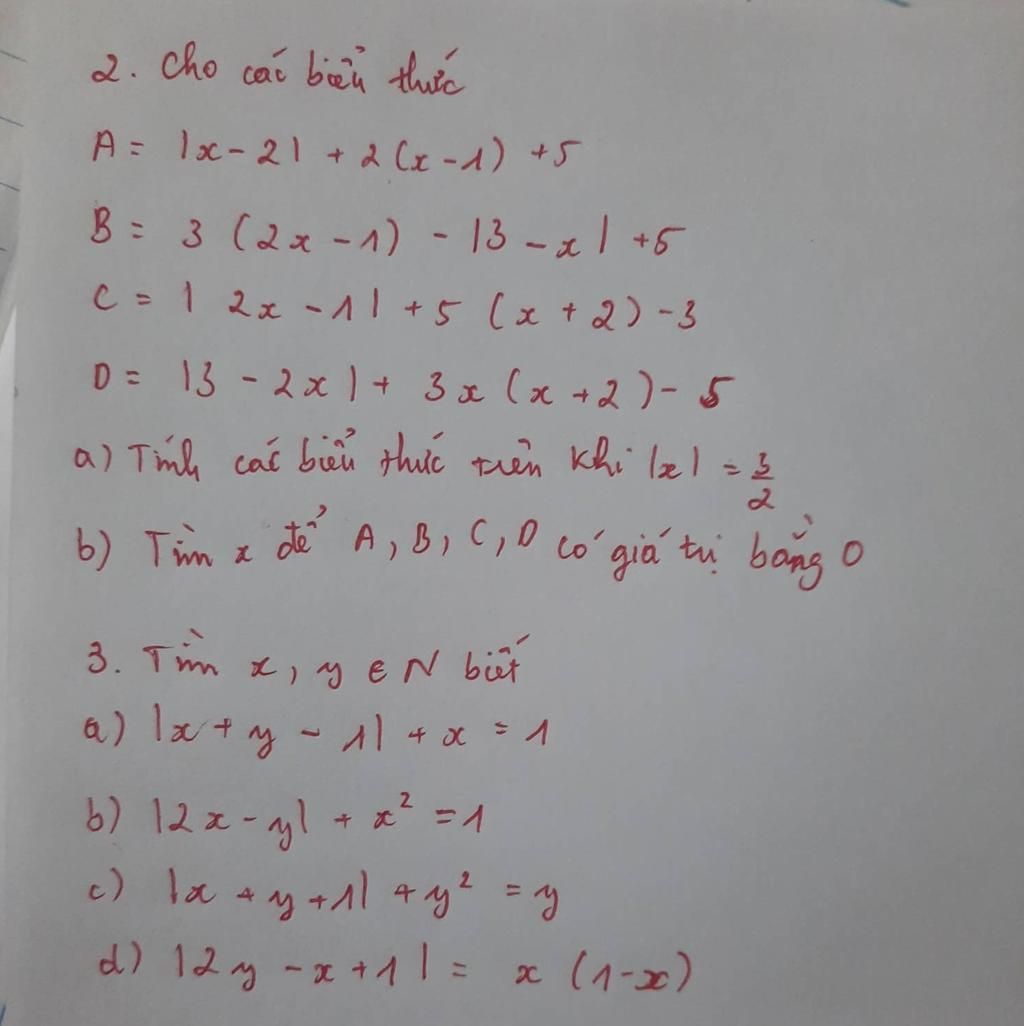 2. Cho các biểu thức
A = |x - 2| + 2(x - 1) + 5
B = 3 (2x - 1) - |3 - x| + 5
C = | 2x - 1| + 5 (x + 2) - 3
D = |3 - 2x| + 3x (x + 2) - 5
a) Tính các biểu thức trên khi |x| = 3/2
b) Tìm x để A, B, C, D có giá trị bằng 0
3. Tìm x, y ∈ N biết
a) |x + y - 1| + x = 1
b) |2x - y| + x² = 1
c) |x + y + 1| + y² = y
d) |2y - x + 1| = x (1 - x)